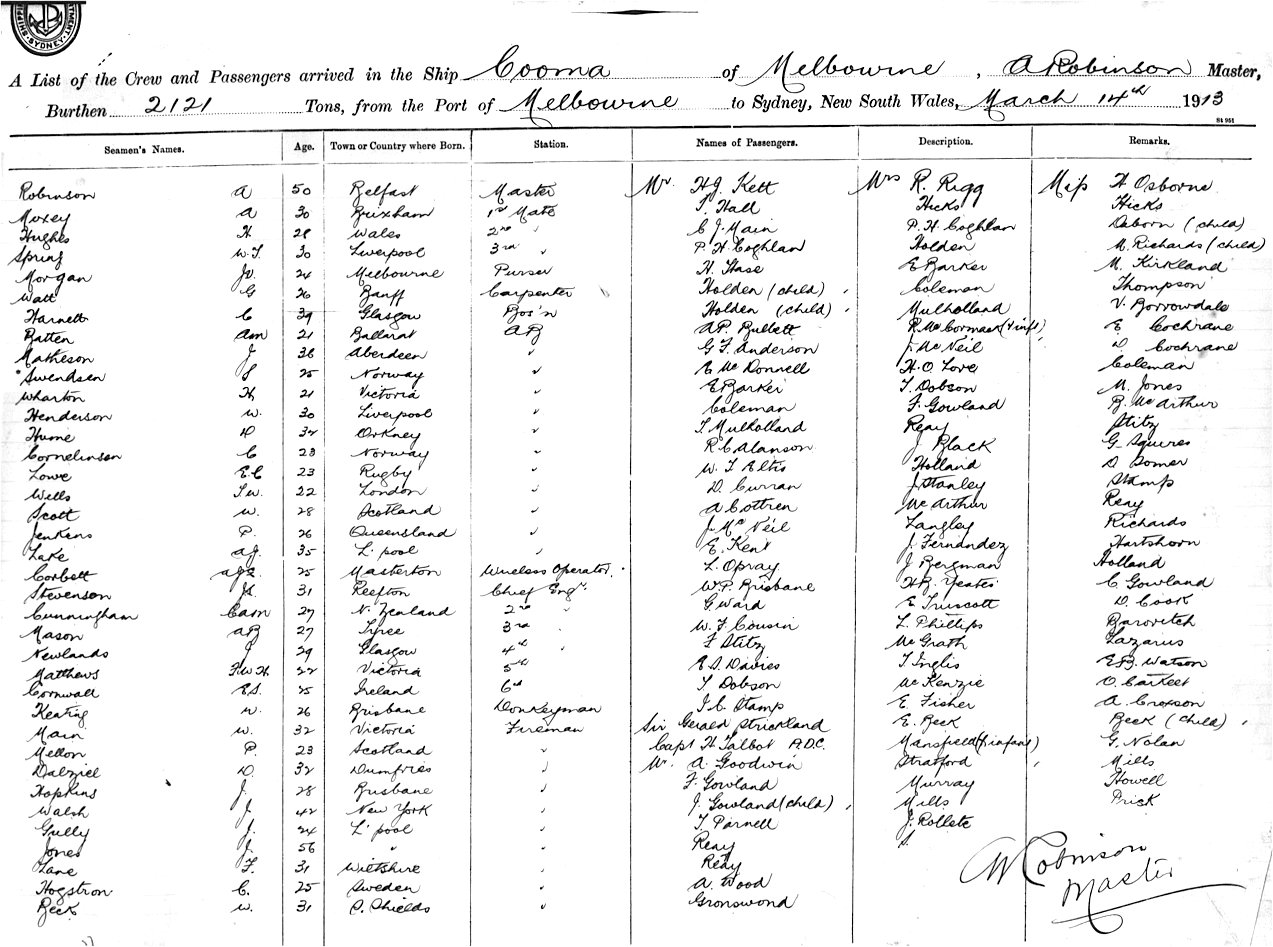 SYDNEY
A List of the Crew and Passengers arrived in the Ship Cooma of Melbourne, A Robinson Master,
Burthen 2121 Tons, from the Port of Melbourne to Sydney, New South Wales, March 14th 1913
St 951
Seamen's Names. Age. Town or Country where Born. Station. Names of Passengers. Description. Remarks.
Robinson A 50 Belfast Master Mr. H.J. Kett Mrs R. Rigg Miss H Osborne
Moxey A 30 Brixham 1st Mate T. Hall Hicks Hicks
Hughes H 28 Wales 2nd " C J. Main P. H. Coghlan Osborn (child)
Spring W.T. 30 Liverpool 3rd " P. H. Coghlan Holden M. Richards (child)
Morgan Jr. 24 Melbourne Purser H. Hase E Barker M. Kirkland
Watt G 26 Banff Carpenter Holden (child) Coleman Thompson
Harnett C 39 Glasgow Bos'n Holden (child) Mulholland V. Borrowdale
Batten am 21 Ballarat AB A.P. Bullett R. McCormack (& inft) E Cochrane
Matheson J. 38 Aberdeen " G. T. Anderson J. McNeil D Cochrane
Swendsen S 25 Norway " E McDonnell H. O. Love Coleman
Wharton H 21 Victoria " E Barker T. Dobson M. Jones
Henderson W. 30 Liverpool " Coleman F. Gowland B. McArthur
Hume D 32 Orkney " T Mulholland Reay Stitz
Cornelinsen C 28 Norway " R C Alanson J Black G. Squires
Lowe E.C 23 Rugby " W. T. Eltis Holland D Somer
Wells T.W. 22 London " D. Curran J Stanley Stamp
Scott W. 28 Scotland " A Cottren McArthur Reay
Jenkens P. 26 Queensland " J. McNeil Langley Richards
Lake A.J. 35 L'pool " E. Kent J. Fernandez Hartshorn
Corbett 25 Masterton Wireless Operator. L. Opray J Bergman Holland
Stevenson Js. 31 Reefton Chief Engr. W.P. Brisbane H.R. Yeates C Gowland
Cunningham Cam 27 N. Zealand 2nd " G Ward E Truscott D. Cook
Mason AB 27 Tyree 3rd " W. F. Cousin L. Phillips Barovitch
Newlands J 29 Glasgow 4th " F Stitz McGrath Lazarus
Matthews F.W.H 22 Victoria 5th E.S. Davies T Inglis E.B. Watson
Cornwall E.S. 25 Ireland 6th T Dobson McKenzie O. Carkeet
Keating W. 26 Brisbane Donkeyman J. C. Stamp E. Fisher A Croxson
Main W. 32 Victoria Fireman Sir Gerald Strickland E. Beck Beck (child)
Mellon P. 23 Scotland " Capt H Talbot A.D.C. Mansfield (& infant) G. Nolan
Dalziel D. 32 Dumfries " Mr. A. Goodwin Stratford Mills
Hopkins J. 28 Brisbane " F. Gowland Murray Howell
Walsh J. 42 New York " J. Gowland (child) Mills Prick
Gully J. 24 L'pool " T Parnell J. Rollete
Jones J. 56 " " Reay S.
Lane F. 31 Wiltshire " Reay
Hogstron C. 25 Sweden " A. Wood
Beck W. 31 S. Shields " Gronswond
A Robinson
Master